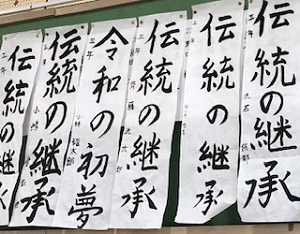 伝統の継承
伝統の継承
伝統の継承
令和の初夢
伝統の継承
伝統の継承